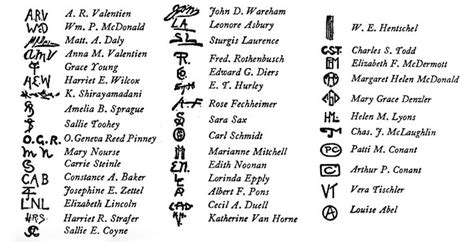 ARV A. R. Valentien
Wm. P. McDonald
Matt. A. Daly
AMV Anna M. Valentien
Grace Young
Harriet E. Wilcox
K. Shirayamadani
Amelia B. Sprague
Sallie Toohey
O.G.R. O. Geneva Reed Pinney
Mary Nourse
Carrie Steinle
CAB Constance A. Baker
Josephine E. Zettel
LNL Elizabeth Lincoln
H.R.S. Harriet R. Strafer
Sallie E. Coyne
John D. Wareham
Leonore Asbury
Sturgis Laurence
Fred. Rothenbusch
Edward G. Diers
E. T. Hurley
Rose Fechheimer
Sara Sax
Carl Schmidt
Marianne Mitchell
Edith Noonan
Lorinda Epply
Albert F. Pons
Cecil A. Duell
Katherine Van Horne
W. E. Hentschel
CST Charles S. Todd
Elizabeth F. McDermott
Margaret Helen McDonald
Mary Grace Denzler
Helen M. Lyons
Chas. J. McLaughlin
PC Patti M. Conant
Arthur P. Conant
VT Vera Tischler
Louise Abel